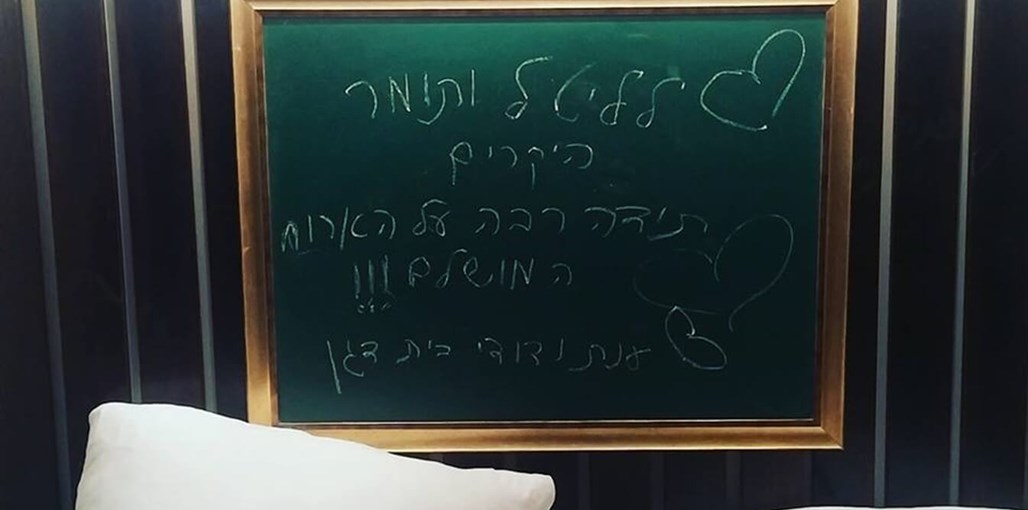 לליטל ותומר
היקרים
תודה רבה על הארוח
המושלם!!!
ענת ודודי בית דגן